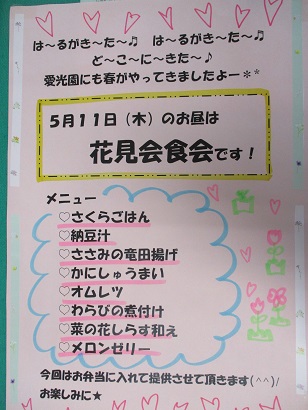 は～るがき～た～♫ は～るがき～た～♫
ど～こ～に～きた～♪
愛光園にも春がやってきましたよー＊*
５月１１日（木）のお昼は
花見会食会です！
メニュー
♡さくらごはん
♡納豆汁
♡ささみの竜田揚げ
♡かにしゅうまい
♡オムレツ
♡わらびの煮付け
♡菜の花しらす和え
♡メロンゼリー
今回はお弁当に入れて提供させて頂きます(^^)/
お楽しみに★